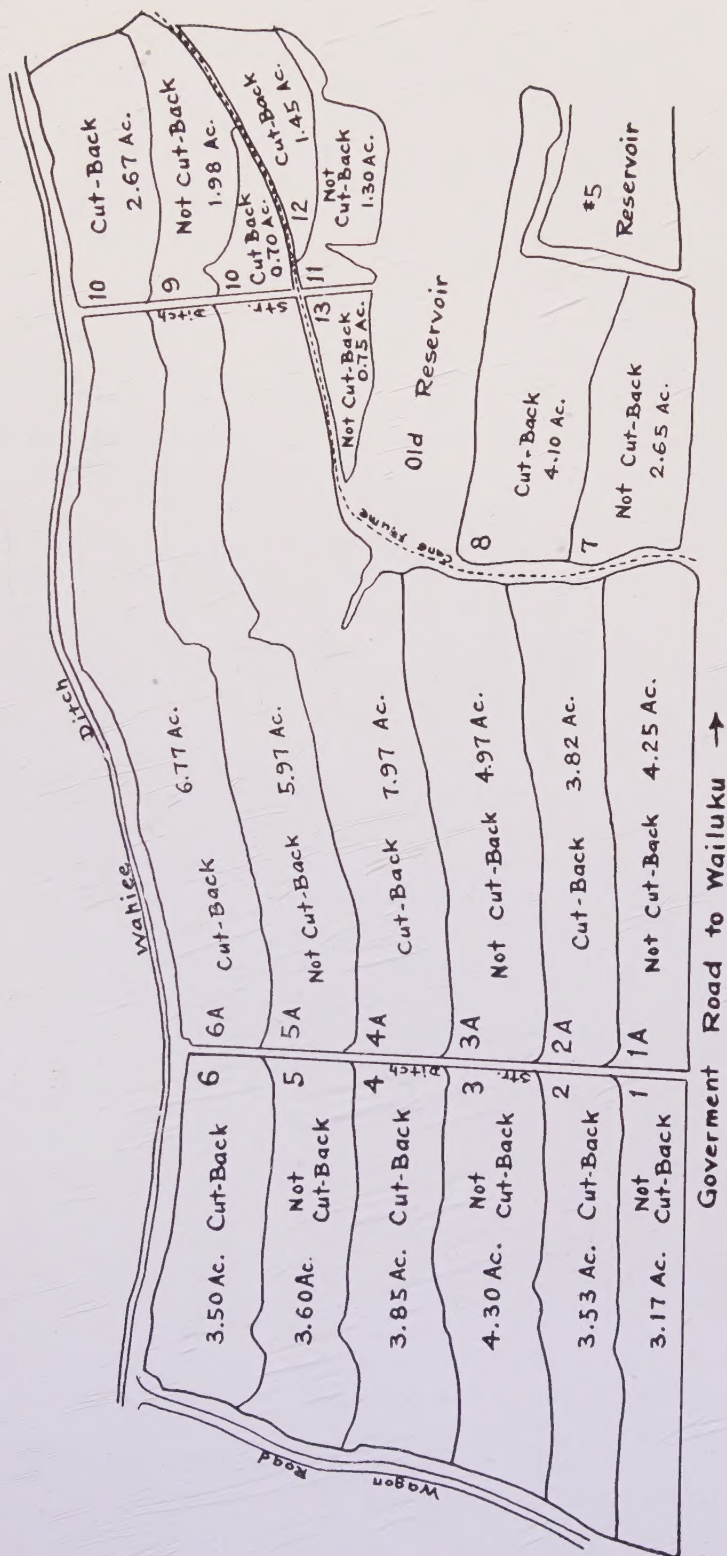 Wahiee Ditch
Wagon Road
6
Cut-Back
3.50 Ac.
5
Not
Cut-Back
3.60 Ac.
4
Cut-Back
3.85 Ac.
3
Not
Cut-Back
4.30 Ac.
2
Cut-Back
3.53 Ac.
1
Not
Cut-Back
3.17 Ac.
Str. Ditch
6A
Cut-Back
6.77 Ac.
5A
Not Cut-Back
5.97 Ac.
4A
Cut-Back
7.97 Ac.
3A
Not Cut-Back
4.97 Ac.
2A
Cut-Back
3.82 Ac.
1A
Not Cut-Back
4.25 Ac.
Str. Ditch
10
Cut-Back
2.67 Ac.
9
Not Cut-Back
1.98 Ac.
10
Cut Back
0.70 Ac.
12
Cut-Back
1.45 Ac.
11
Not
Cut-Back
1.30 Ac.
13
Not Cut-Back
0.75 Ac.
Old Reservoir
Cane Flume
8
Cut-Back
4.10 Ac.
7
Not Cut-Back
2.65 Ac.
#5
Reservoir
Goverment Road to Wailuku →